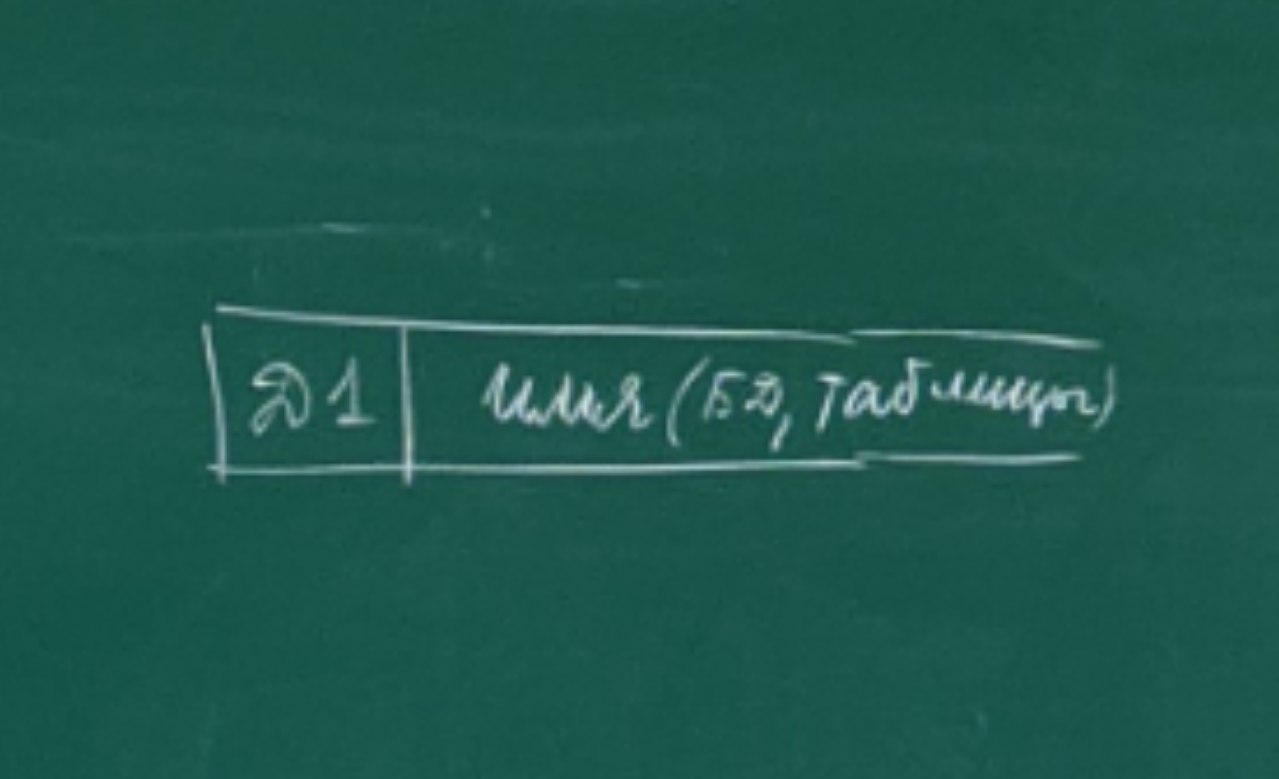 Д1 имя (БД, таблицы)